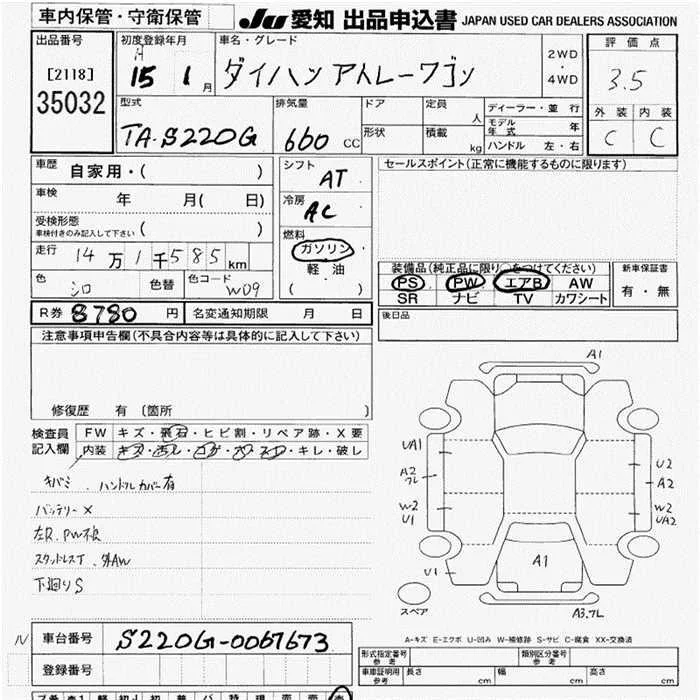 車内保管・守衛保管
JU 愛知 出品申込書 JAPAN USED CAR DEALERS ASSOCIATION
出品番号
[2118]
35032
初度登録年月
H
15 1 月
車名・グレード
ダイハツ アトレーワゴン
2WD
4WD
評価点
3.5
外装 内装
C C
型式
TA-S220G
排気量
660 CC
ドア
形状
定員
人
積載
kg
ディーラー・並行
モデル年式 年
ハンドル 左・右
車歴 自家用・( )
車検 年 月( 日)
受検形態
車検付きのみ記入して下さい ( )
走行 14万1千585km
色 シロ 色替 色コード W09
シフト
AT
冷房
AC
燃料
ガソリン・
軽油
( )
セールスポイント(正常に機能するものに限ります)
装備品(純正品に限り○をつけてください)
PS PW エアB AW
SR ナビ TV カワシート
新車保証書
有・無
R券 8780 円 名変通知期限 月 日
後日品
注意事項申告欄(不具合内容等は具体的に記入して下さい)
修復歴 有 〔箇所 〕
検査員
記入欄
FW キズ・飛石・ヒビ割・リペア跡・X要
内装 キズ・汚レ・コゲ・ ・キレ・破レ
キバミ . ハンドルカバー有
バッテリー×
左R.PW不良
スタッドレスT . 外AW
下廻りS
A1
UA1
A2
フレ
W2
U1
U2
A2
W2
UA2
A1
U1
スペア
A3.フレ
A-キズ E-エクボ U-凹み W-補修跡 S-サビ C-腐食 XX-交換済
車台番号 S220G-0067673
登録番号
形式指定番号
参考
類別区分番号
参考
車庫証明用
参考
長さ cm 幅 cm 高さ cm